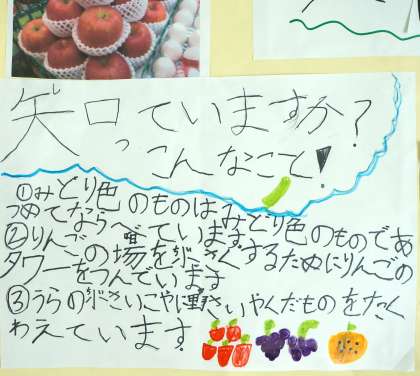 知っていますか?
こんなこと!
①みどり色のものは、みどり色のものであ
つめてならべています
②りんごの場を
タワーをつんでいます
するためにりんごの
③うらの
やくだものをたく
わえています